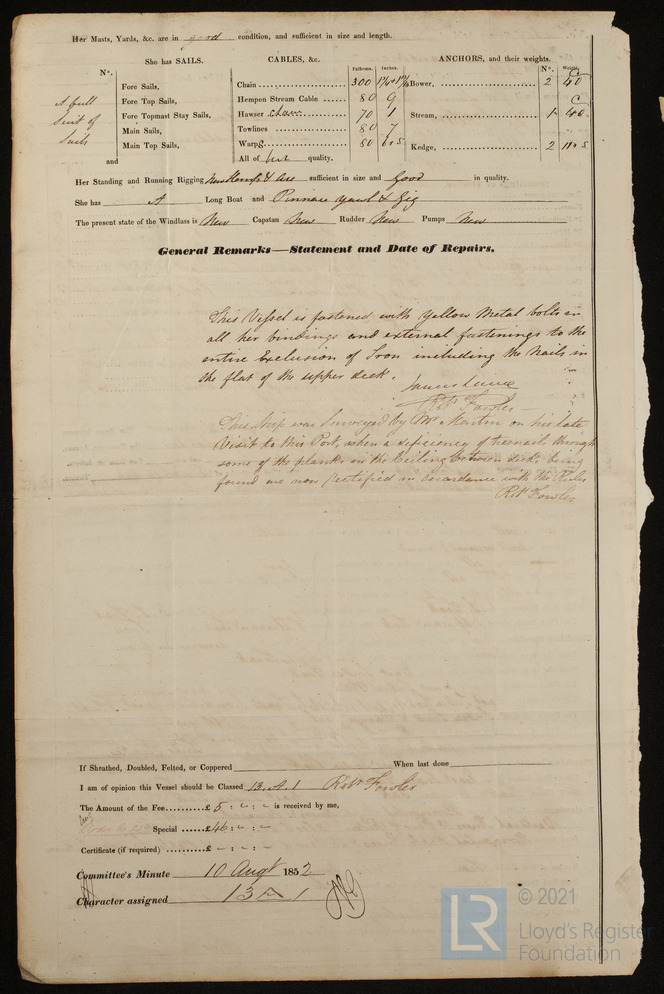 Her Masts, Yards, &c. are in good condition, and sufficient in size and length.
She has SAILS.
CABLES, &c.
ANCHORS, and their weights.
Nº.
Fathoms.
Inches.
Nº.
Weight.
A full
Suit of
Sails
Fore Sails,
Fore Top Sails,
Fore Topmast Stay Sails,
Main Sails,
Main Top Sails,
and
Chain 300
Hempen Stream Cable 80 9
Hawser chain 70 1
Towlines 80 7
Warp 80 6 & 5
All of best quality.
Bower, 2 C 40
Stream, 1 C
Kedge, 2
Her Standing and Running Rigging New Hemp & are sufficient in size and Good in quality.
She has A Long Boat and Pinnace Yawl & Gig
The present state of the Windlass is New Capstan New Rudder New Pumps New
General Remarks—Statement and Date of Repairs.
This Vessel is fastened with Yellow Metal bolts in
all her bindings and external fastenings to the
entire Exclusion of Iron including the Nails in
the flat of the upper deck.
Robt Fowler
This Ship was Surveyed by Mr Martin on his late
Visit to this Port, when a deficiency of treenails through
some of the planks in the Ceiling between decks being
found are now rectified in accordance with the Rules
Robt Fowler
If Sheathed, Doubled, Felted, or Coppered When last done
I am of opinion this Vessel should be Classed 13 A 1 Robt Fowler
The Amount of the Fee £ 5 : - : - is received by me,
Special £46 : - : -
Certificate (if required) £ - : - : -
Committee's Minute 10 Augt 1852
Character assigned 13 A 1
LR
© 2021
Lloyd's Register
Foundation